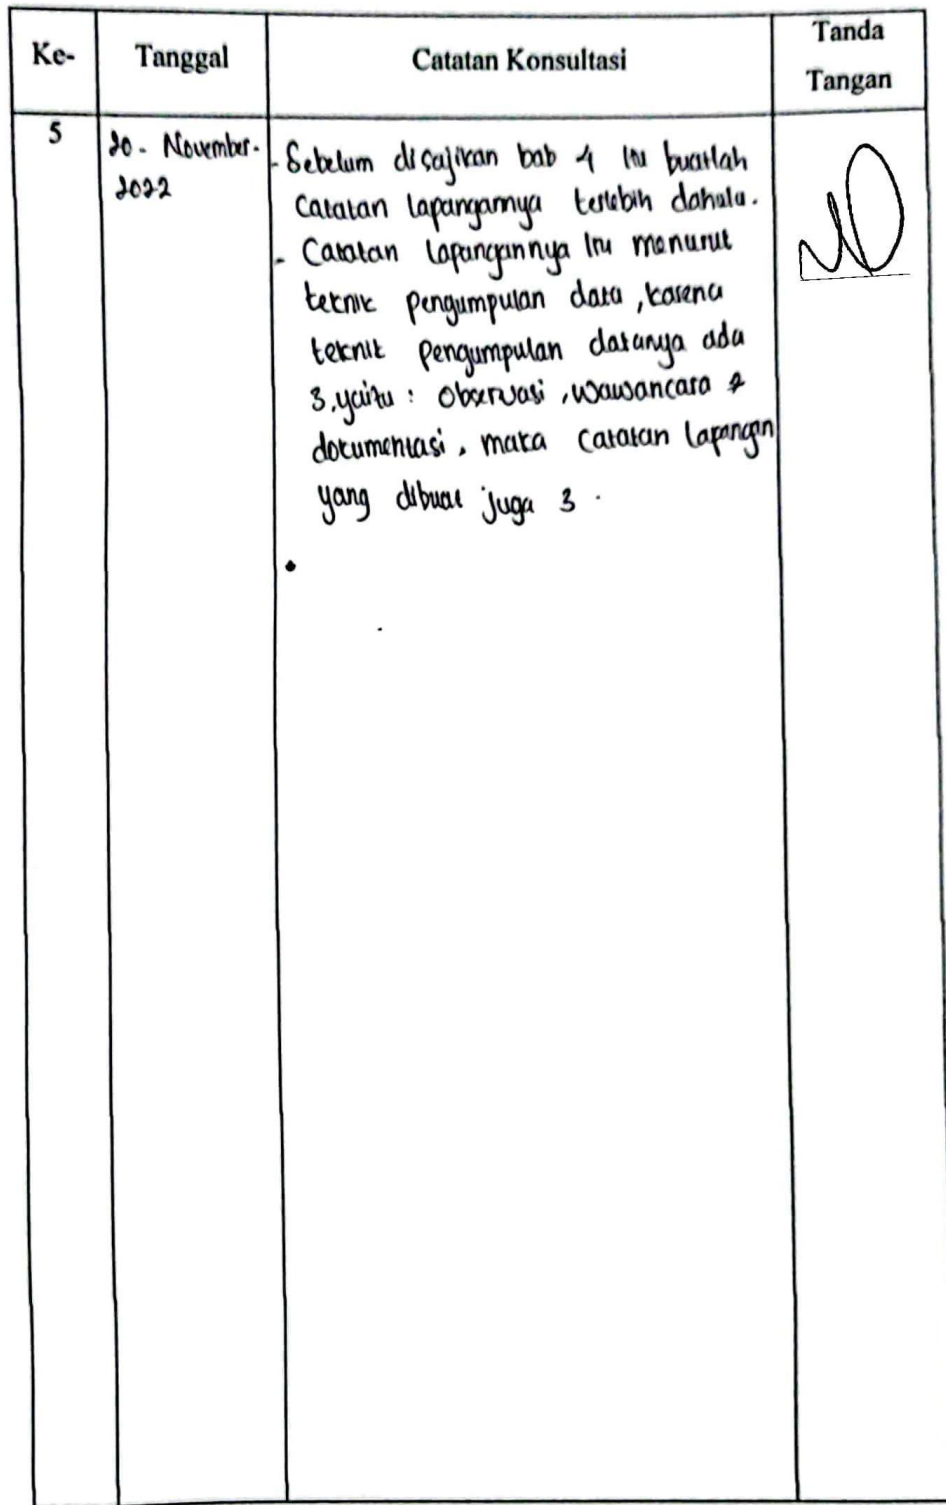 Ke-
Tanggal
Catatan Konsultasi
Tanda
Tangan
5
20 - November -
2022
- Sebelum disajikan bab 4 itu buatlah
catatan lapangannya terlebih dahulu.
- Catatan lapangannya itu menurut
teknik pengumpulan data, karena
teknik pengumpulan datanya ada
3, yaitu : Observasi, wawancara &
dokumentasi, maka catatan lapangan
yang dibuat juga 3.